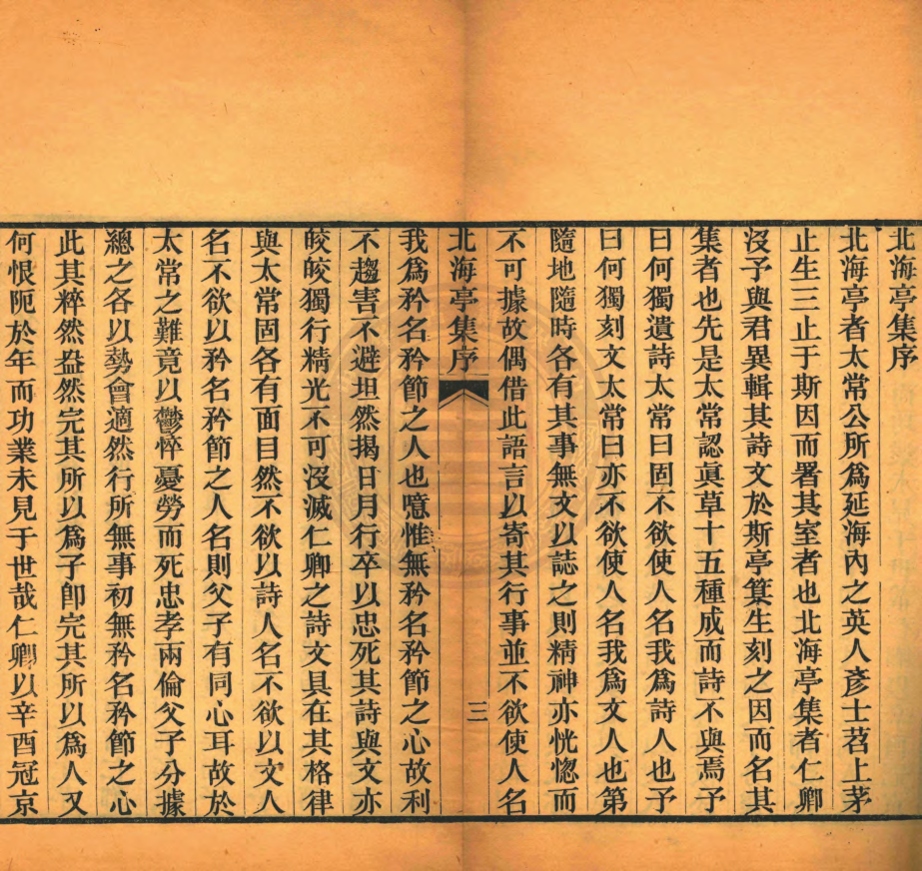 北海亭集序
北海亭者太常公所爲延海內之英人彥士茗上茅
止生三止于斯因而署其室者也北海亭集者仁卿
沒予與君異輯其詩文於斯亭簒生刻之因而名其
集者也先是太常認眞草十五種成而詩不與焉予
曰何獨遺詩太常曰固不欲使人名我爲詩人也予
曰何獨刻文太常曰亦不欲使人名我爲文人也第
隨地隨時各有其事無文以誌之則精神亦恍惚而
不可據故偶借此語言以寄其行事並不欲使人名
北海亭集序
三
我爲矜名矜節之人也噫惟無矜名矜節之心故利
不趨害不避坦然揭日月行卒以忠死其詩與文亦
皎皎獨行精光不可沒滅仁卿之詩文具在其格律
與太常固各有面目然不欲以詩人名不欲以文人
名不欲以矜名矜節之人名則父子有同心耳故於
太常之難竟以鬱悴憂勞而死忠孝兩倫父子分據
總之各以勢會適然行所無事初無矜名矜節之心
此其粹然盎然完其所以爲子卽完其所以爲人又
何恨阨於年而功業未見于世哉仁卿以辛酉冠京